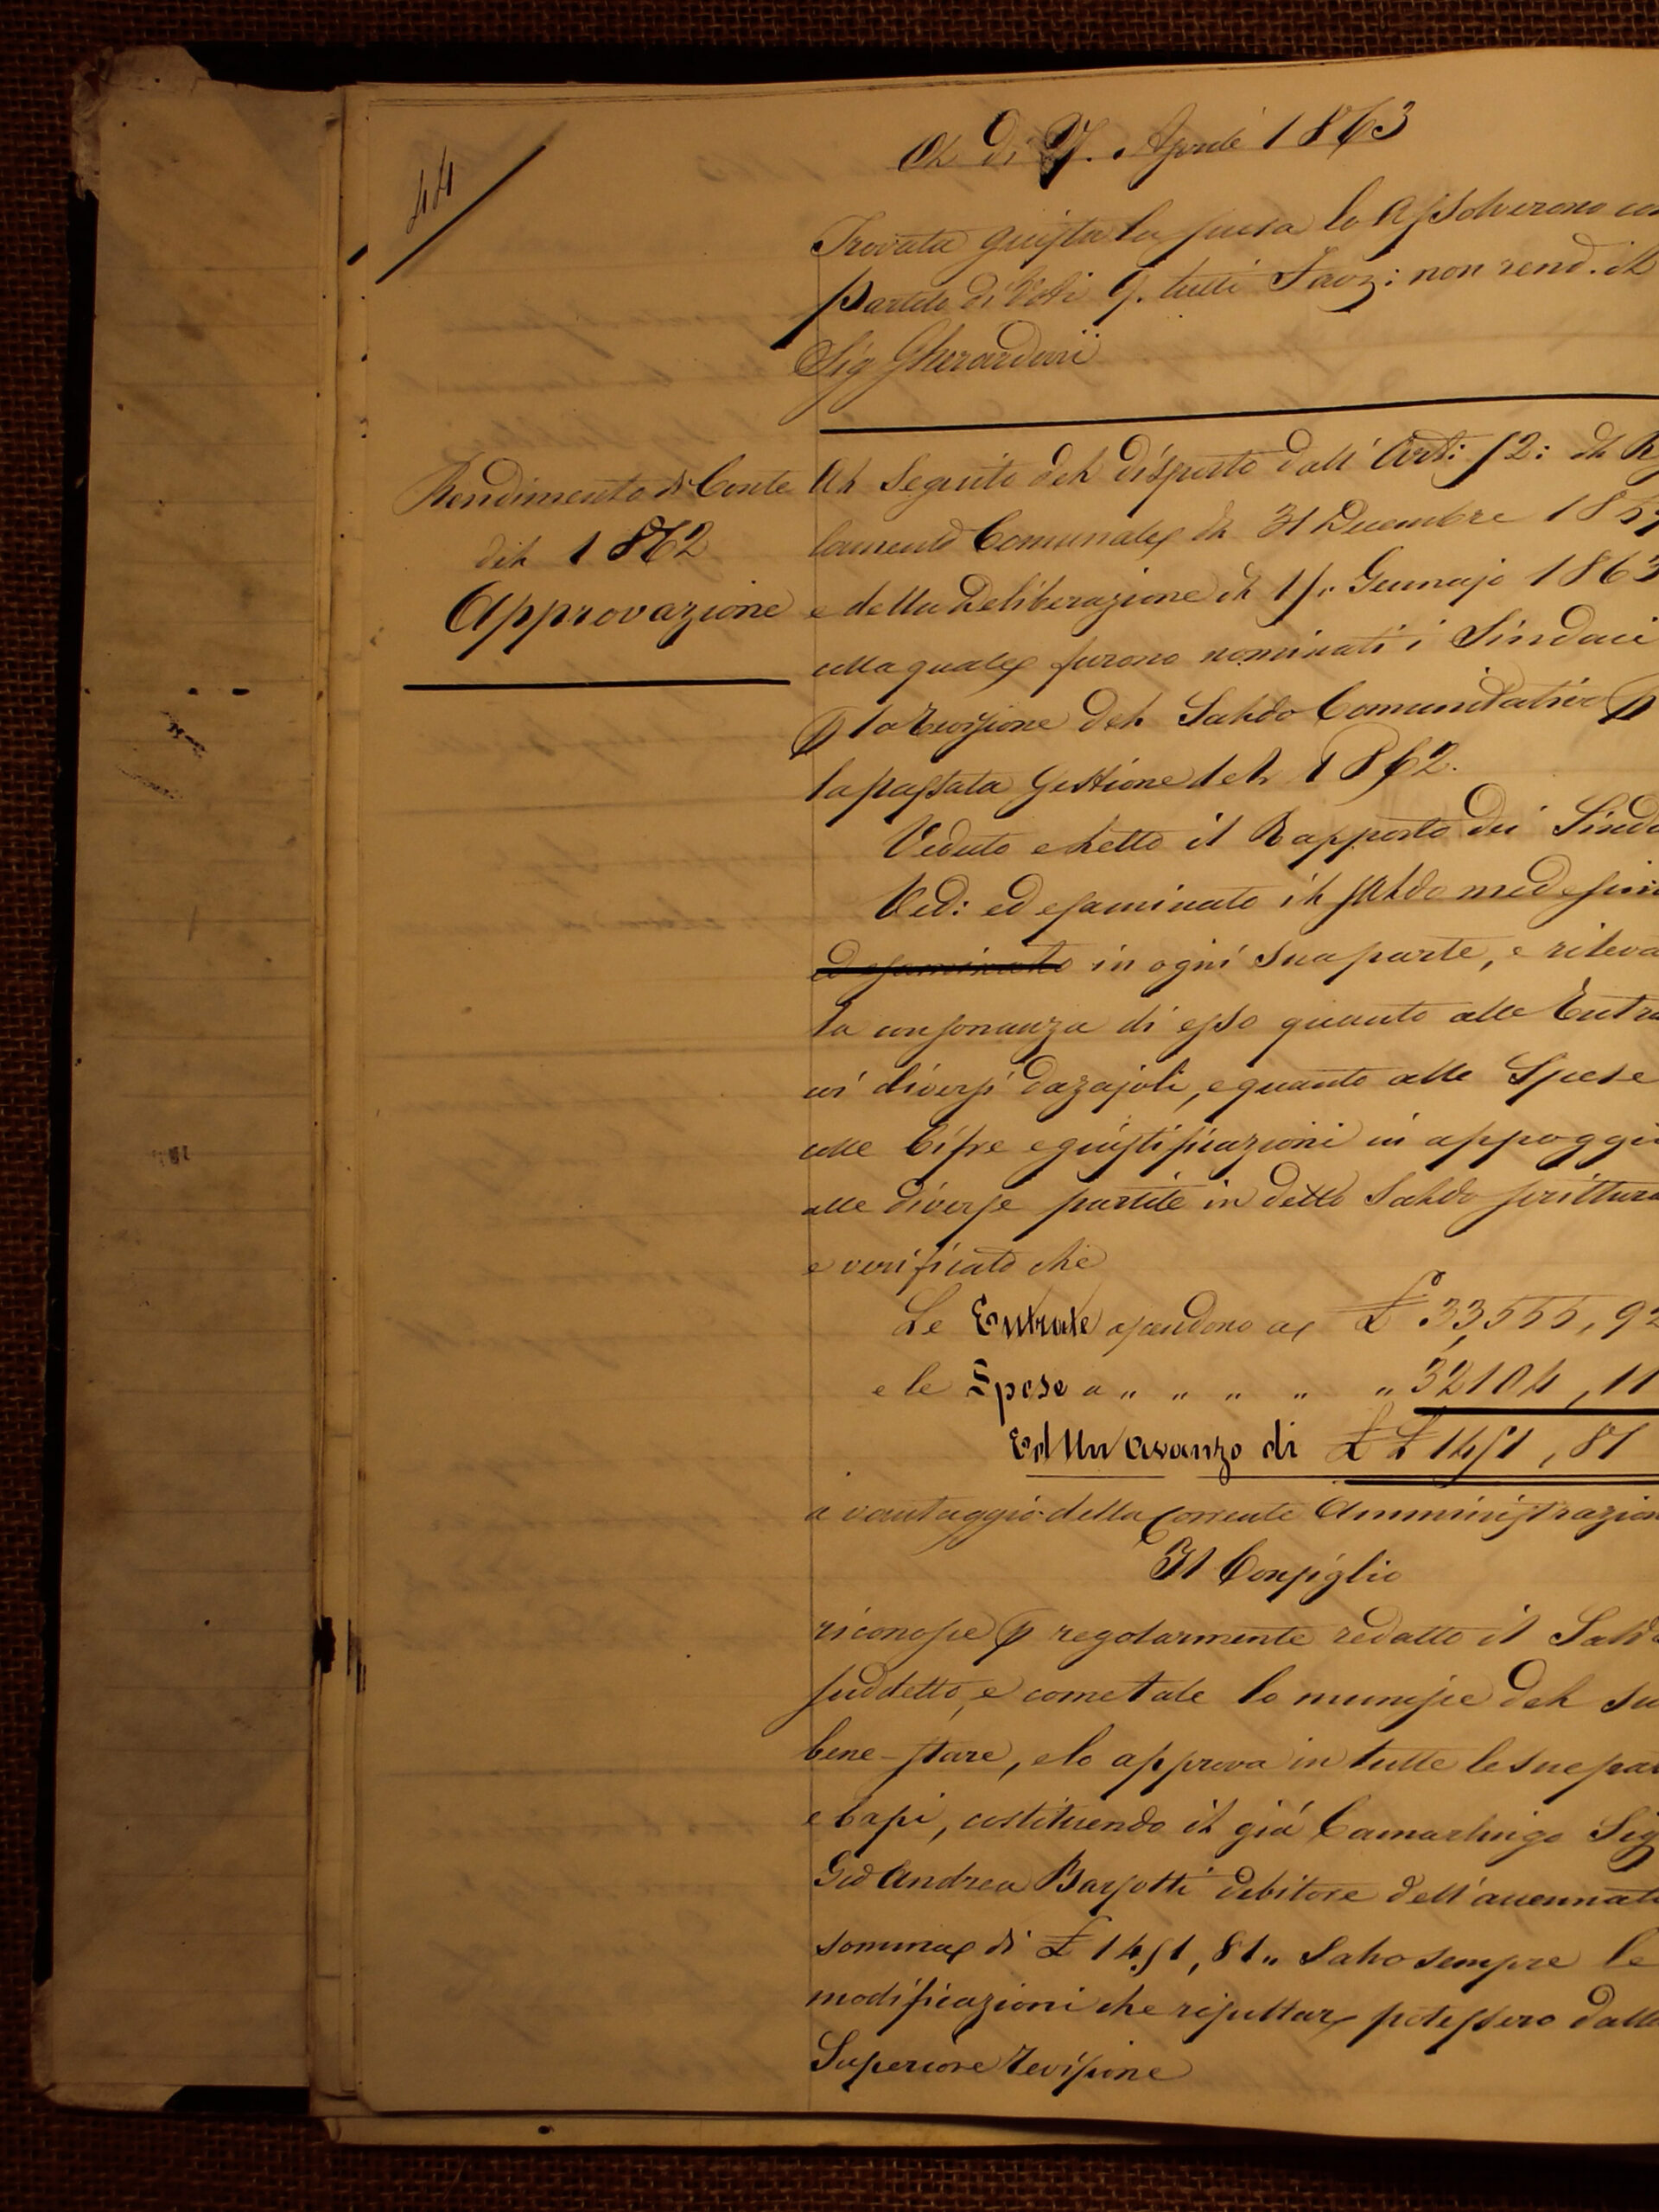 44
Al Dì 7. Aprile 1863
Trovata giusta la scusa lo Assolverono con
Partito di Voti 9. tutti Favz: non rend. il
Sig Gherardini
Rendimento di Conte
del 1862
Approvazione
Al Seguito del disposto dall' Art: 52: del Re
lamento Comunale del 31 Decembre 1859
e della Deliberazione del 15. Gennajo 1863
colla quale furono nominati i Sindaci
p la Revisione del Saldo Comunitativo p
la passata Gestione del 1862.
Veduto e Letto il Rapporto dei Sinda
Ved: ed esaminato il saldo medesimo
ed esaminato in ogni sua parte, e rileva
la consonanza di esso quanto alle Entra
coi diversi dazajoli, e quanto alle Spese
colle Cifre e giustificazioni in appoggio
alle diverse partite in detto Saldo scrittura
e verificato che
Le Entrate ascendono a £ 33,555, 92
e le Spese a " " " " " 32104, 11
Ed Un avanzo di £ 1451, 81
a vantaggio della Corrente Amministrazion
Il Consiglio
riconosce p regolarmente redatto il Saldo
suddetto, e come tale lo munisce del su
bene-stare, e lo approva in tutte le sue par
e Capi, costituendo il già Camarlingo Sig
Gio Andrea Barsotti debitore dell' accennata
somma di £ 1451, 81 " Salvo sempre le
modificazioni che risultar potessero dalla
Superiore Revisione